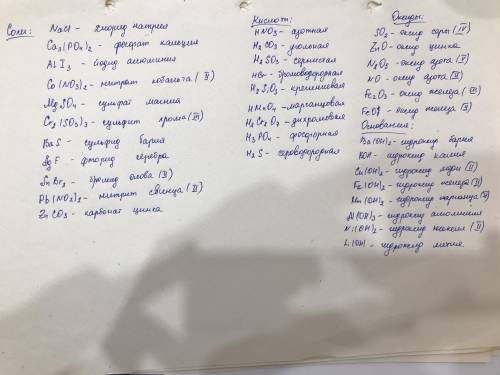 Соли:
NaCl - хлорид натрия
Ca₃(PO₄)₂ - фосфат кальция
Al I₃ - йодид алюминия
Co(NO₃)₂ - нитрат кобальта (II)
MgSO₄ - сульфат магния
Cr₂(SO₃)₃ - сульфит хрома (III)
BaS - сульфид бария
AgF - фторид серебра
SnBr₂ - бромид олова (II)
Pb(NO₂)₂ - нитрит свинца (II)
ZnCO₃ - карбонат цинка
Кислот:
HNO₃ - азотная
H₂CO₃ - угольная
H₂SO₃ - сернистая
HBr - бромоводородная
H₂SiO₃ - кремниевая
HMnO₄ - марганцовая
H₂Cr₂O₇ - дихромовая
H₃PO₄ - фосфорная
H₂S - сероводородная
Оксиды:
SO₂ - оксид серы (IV)
ZnO - оксид цинка
N₂O₅ - оксид азота (V)
NO - оксид азота (II)
Fe₂O₃ - оксид железа (III)
FeO - оксид железа (II)
Основания:
Ba(OH)₂ - гидроксид бария
KOH - гидроксид калия
Cu(OH)₂ - гидроксид меди (II)
Fe(OH)₂ - гидроксид железа (II)
Mn(OH)₂ - гидроксид марганца (II)
Al(OH)₃ - гидроксид алюминия
Ni(OH)₂ - гидроксид никеля (II)
LiOH - гидроксид лития